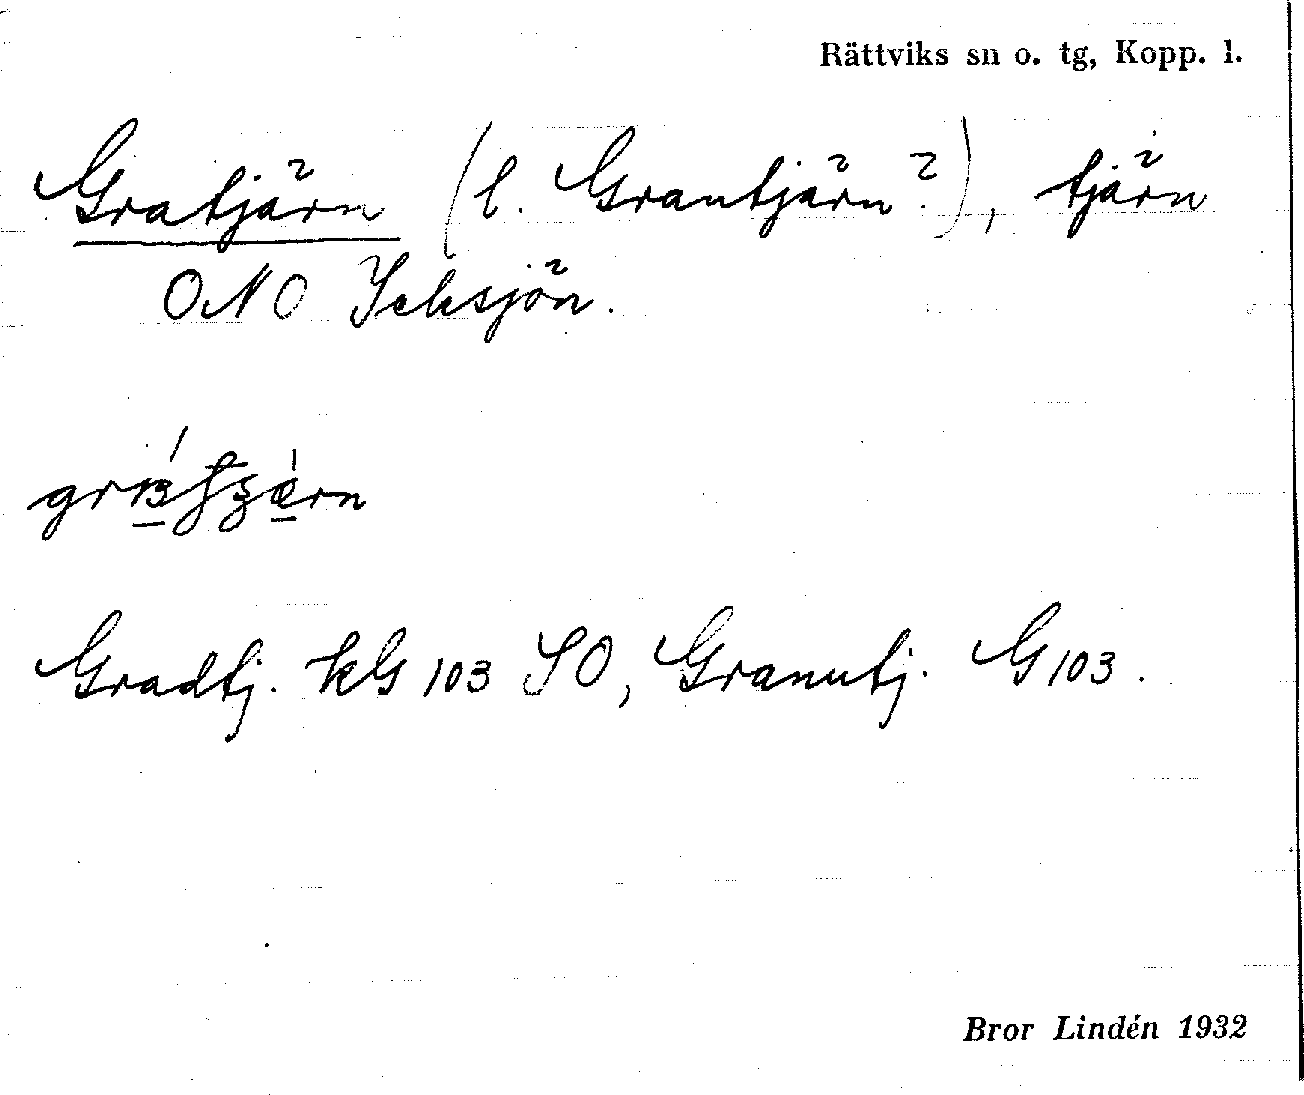 Rättviks sn o. tg, Kopp. l.
Gratjärn (l. Grantjärn?), tjärn
ONO Icksjön.
Gradtj. kG 103 SO, Granntj. G 103.
Bror Lindén 1932